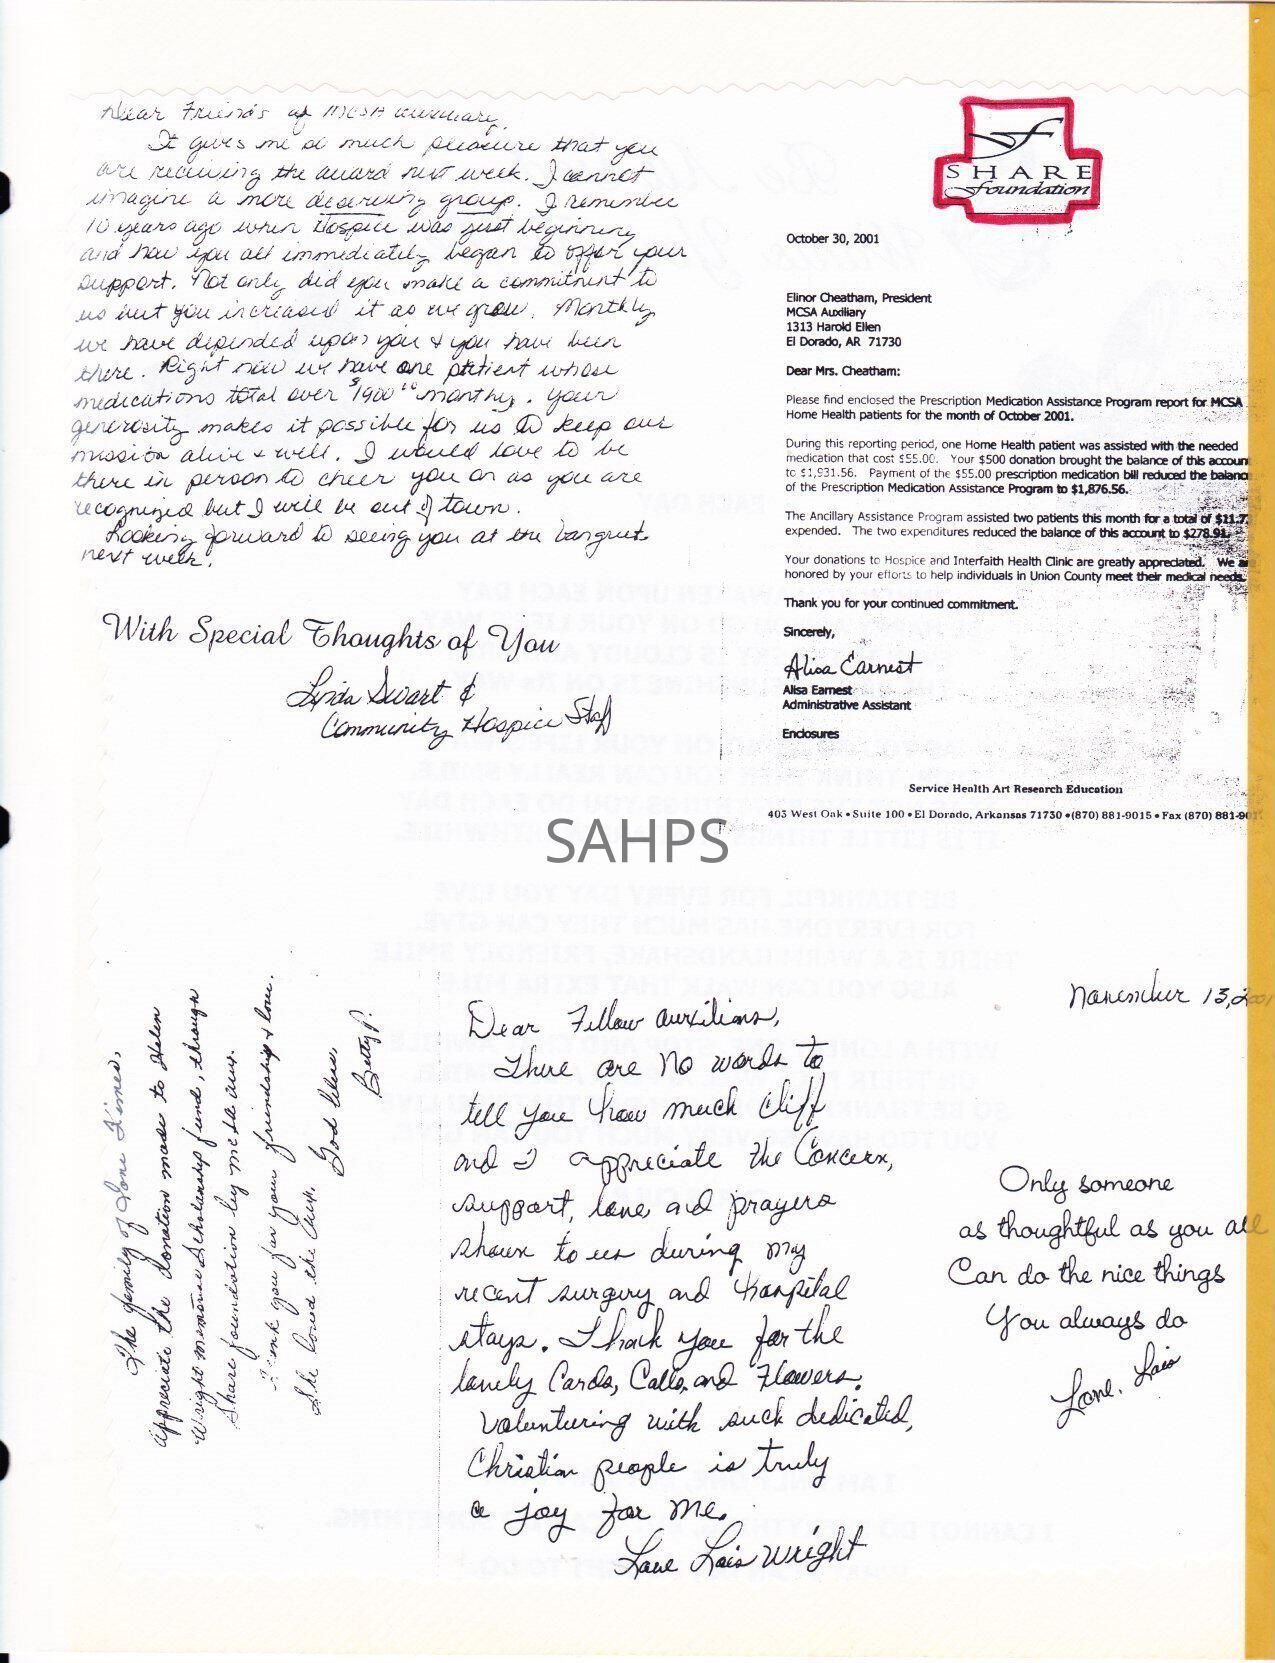 Dear Friends of MCSA Auxiliary,
It gives me so much pleasure that you
are receiving the award next week. I cannot
imagine a more deserving group. I remember
10 years ago when Hospice was just beginning
and how you all immediately began to offer your
support. Not only did you make a commitment to
us but you increased it as we grow. Monthly
we have depended upon you & you have been
there. Right now we have one patient whose
medications total over $1900 monthly. Your
generosity makes it possible for us to keep our
mission alive & well. I would love to be
there in person to cheer you on as you are
recognized but I will be out of town.
Looking forward to seeing you at the banquet
next week.
With Special Thoughts of You
Linda Swart &
Community Hospice Staff
SHARE
foundation
October 30, 2001
Elinor Cheatham, President
MCSA Auxiliary
1313 Harold Ellen
El Dorado, AR 71730
Dear Mrs. Cheatham:
Please find enclosed the Prescription Medication Assistance Program report for MCSA
Home Health patients for the month of October 2001.
During this reporting period, one Home Health patient was assisted with the needed
medication that cost $55.00. Your $500 donation brought the balance of this account
to $1,931.56. Payment of the $55.00 prescription medication bill reduced the balance
of the Prescription Medication Assistance Program to $1,876.56.
The Ancillary Assistance Program assisted two patients this month for a total of $11.7
expended. The two expenditures reduced the balance of this account to $278.91.
Your donations to Hospice and Interfaith Health Clinic are greatly appreciated. We are
honored by your efforts to help individuals in Union County meet their medical needs.
Thank you for your continued commitment.
Sincerely,
Alisa Earnest
Alisa Earnest
Administrative Assistant
Enclosures
Service Health Art Research Education
403 West Oak • Suite 100 • El Dorado, Arkansas 71730 • (870) 881-9015 • Fax (870) 881-901
SAHPS
The family of Ione Kimes,
appreciate the donation made to Helen
Wright memorial Scholarship fund, through
Share foundation by MCSA Aux.
Thank you for your friendship & love.
She loved the Aux.
God bless,
Betty P.
November 13, 2001
Dear Fellow Auxilians,
There are no words to
tell you how much Cliff
and I appreciate the Concern,
support, love and prayers
shown to us during my
recent surgery and Hospital
stays. Thank you for the
lovely Cards, Calls, and Flowers.
Volunturing with such dedicated,
Christian people is truly
a joy for me.
Love Lois Wright
Only someone
as thoughtful as you all
Can do the nice things
You always do
Love, Lois